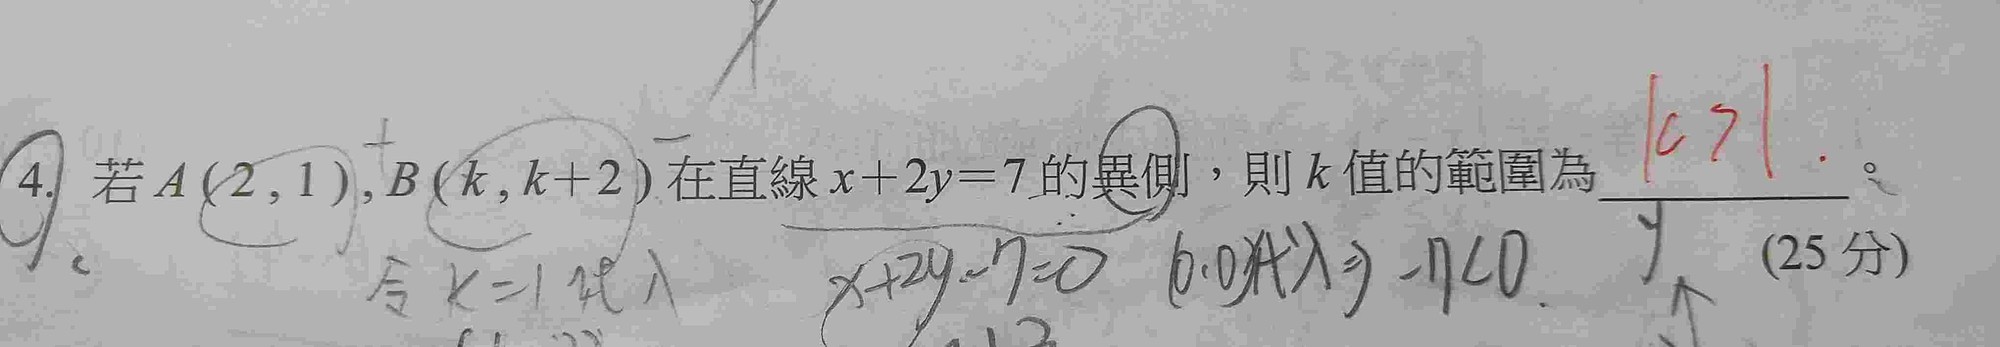 4. 若 A(2,1), B(k,k+2) 在直線 x+2y=7 的異側，則 k 值的範圍為 k>1. 。
(25 分)
令 k=1 代入 x+2y-7=0 (0.0)代入⇒ -7<0. y